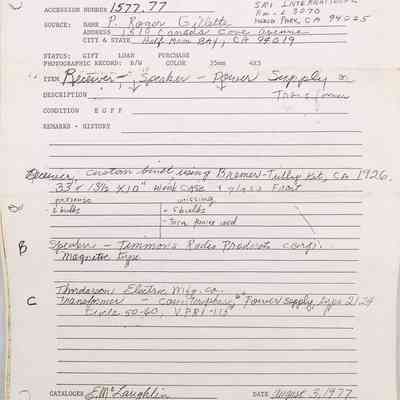 ACCESSION NUMBER 1577.77
SRI INTERNATIONAL
Rm-L 3070
MENLO PARK, CA 94025
SOURCE: NAME P. Roger Gillette
ADDRESS 1519 Canada Cove Avenue
CITY & STATE Half Moon Bay, CA 94019
STATUS: GIFT LOAN PURCHASE
PHOTOGRAPHIC RECORD: B/W COLOR 35mm 4X5
ITEM Receiver - Speaker - Power Supply or
Transformer
DESCRIPTION
CONDITION E G F P
REMARKS - HISTORY
Receiver, custom built using Bremer-Tully Kit, CA 1926.
33 x 13½ x 10" wood case & glass front
presence missing
5 bulbs - 5 bulbs
B Speaker - Timmons Radio Products Corp.
magnetic type
Thordarson Electric Mfg. Co.
C Transformer - Power Supply, type 2124
Cycle 50-60, V.PRI-115
CATALOGER E. McLaughlin DATE August 3, 1977